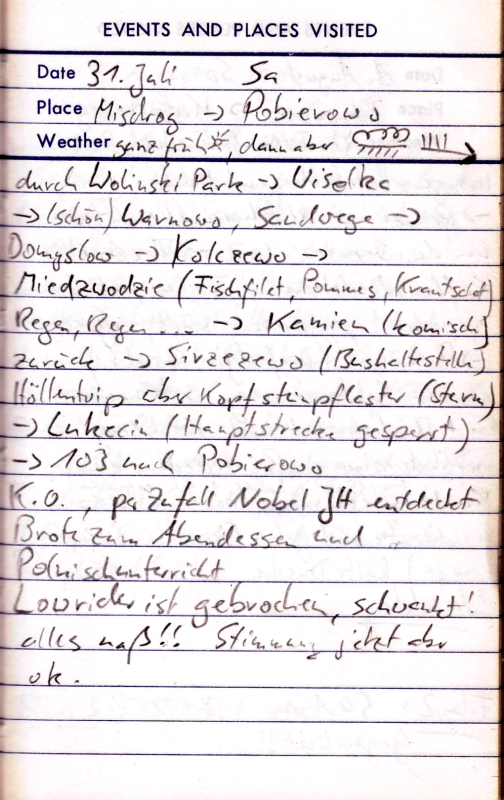 EVENTS AND PLACES VISITED
Date 31. Juli Sa
Place Misdroy -> Pobierowo
Weather ganz früh, dann aber
durch Wolinski Park -> Wiselka
-> (schön) Warnowo, Sandwege ->
Domyslow -> Kolczewo ->
Miedzwodzie (Fischfilet, Pommes, Krautsalat)
Regen, Regen ... -> Kamien (komisch)
zurück -> Sirzezewo (Bushaltestelle)
Höllentrip über Kopfsteinpflaster (Sturm)
-> Lukecin (Hauptstrecke gesperrt)
-> 103 nach Pobierowo
K.O., per Zufall Nobel JH entdeckt
Brote zum Abendessen und
Polnischunterricht
Lowrider ist gebrochen, schwenkt!
alles naß!! Stimmung jetzt aber
ok.